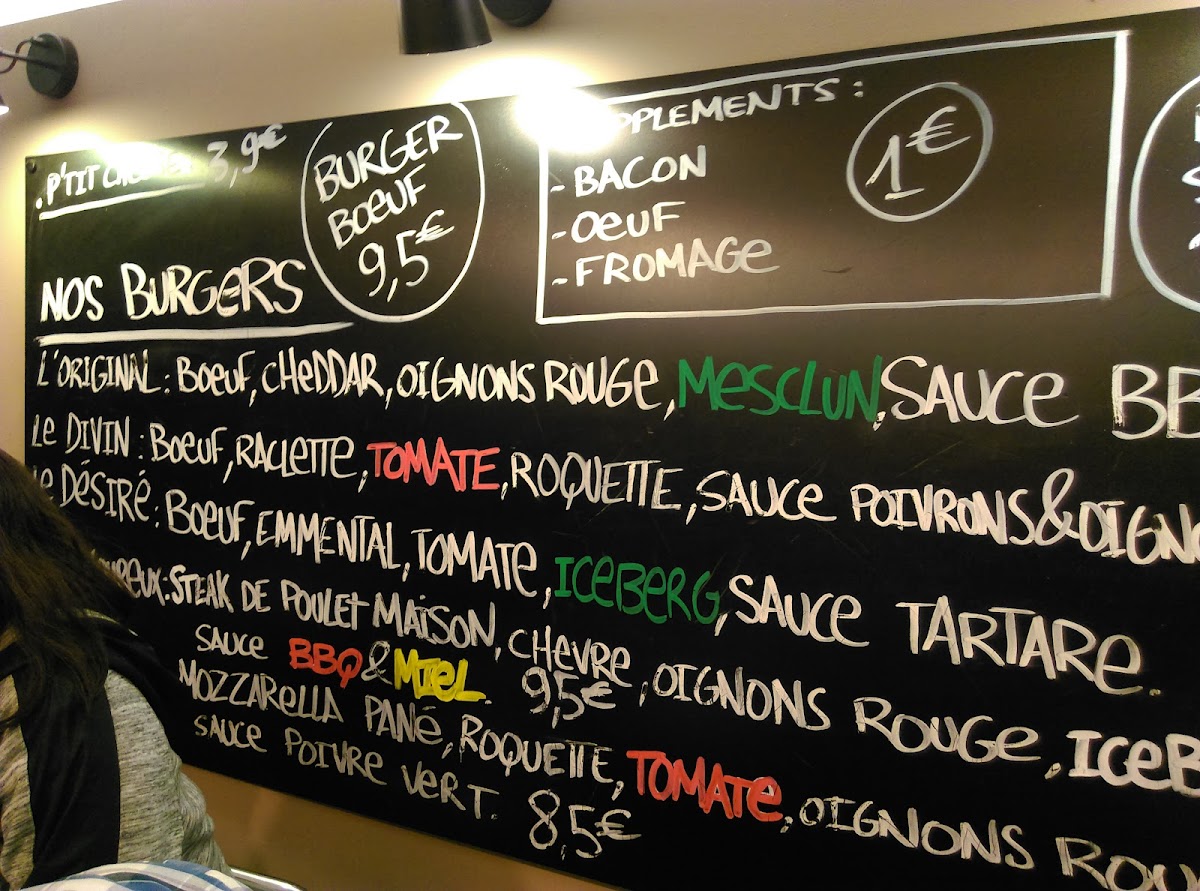 . P'TIT 3,9€
BURGER
BŒUF
9,5€
PPLEMENTS :
1€
- BACON
- OEUF
- FROMAGE
NOS BURGERS
L'ORIGINAL : BOEUF, CHEDDAR, OIGNONS ROUGE, MESCLUN, SAUCE BB
LE DIVIN : BOEUF, RACLETTE, TOMATE, ROQUETTE, SAUCE POIVRONS & OIGNO
DÉSIRÉ : BOEUF, EMMENTAL, TOMATE, ICEBERG, SAUCE TARTARE.
UREUX : STEAK DE POULET MAISON, CHEVRE, OIGNONS ROUGE, ICEB
SAUCE BBQ & MIEL. 9,5€
MOZZARELLA PANÉ, ROQUETTE, TOMATE, OIGNONS ROU
SAUCE POIVRE VERT. 8,5€